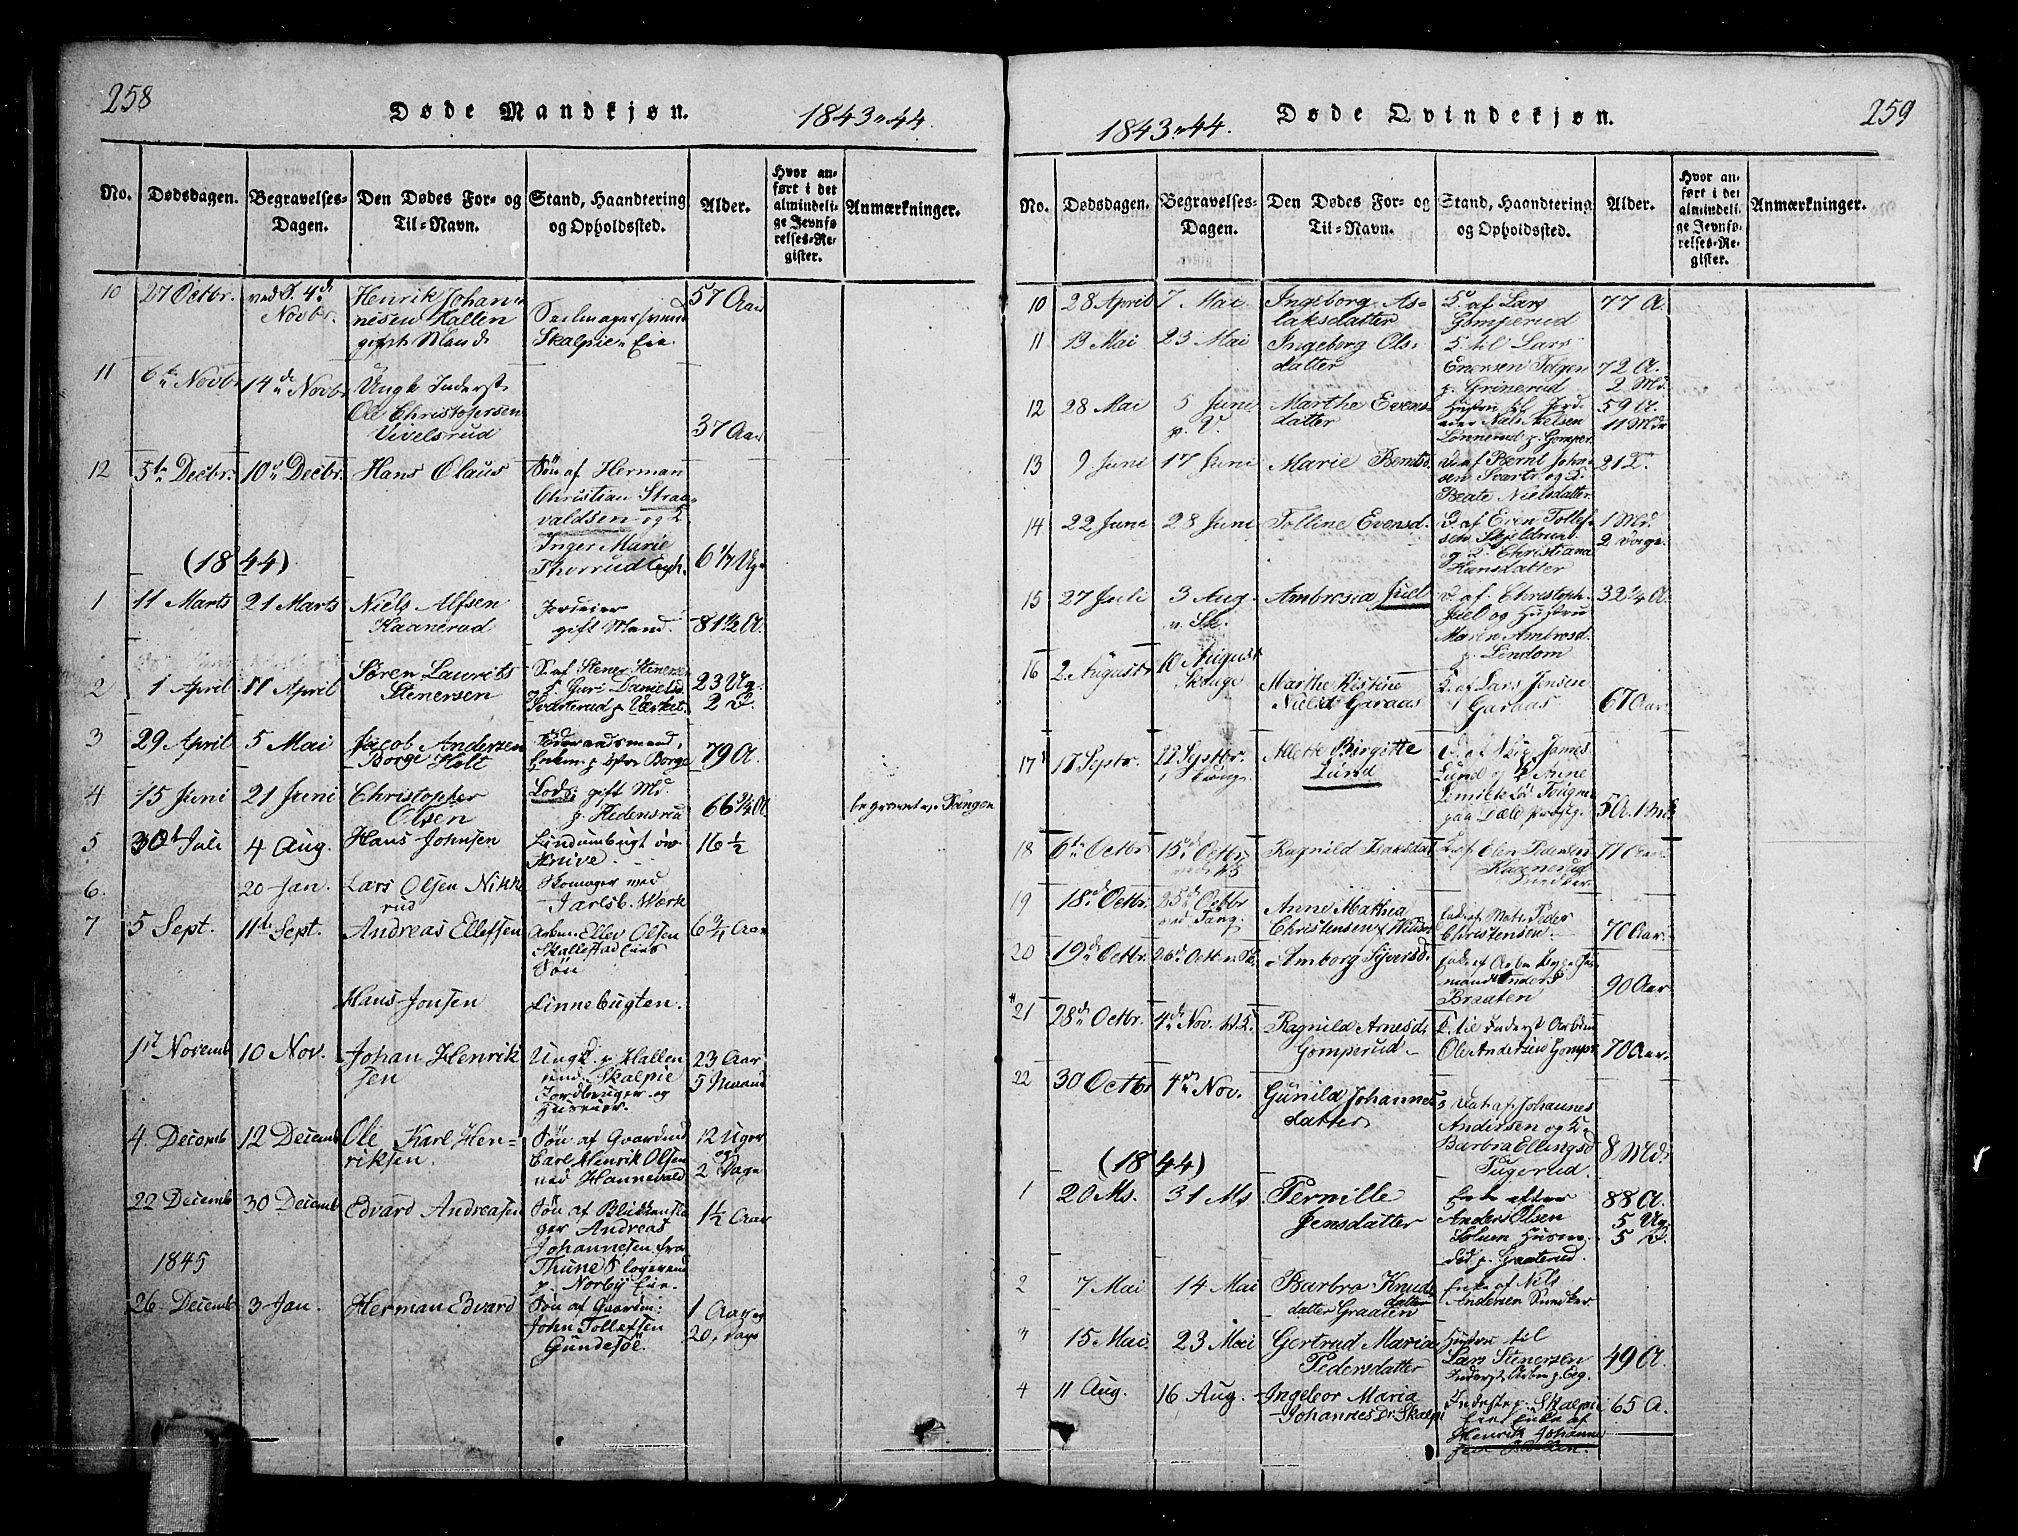 258
Døde Mandkjøn.
1843 " 44.
No.
Dødsdagen.
Begravelses-Dagen.
Den Dødes For- og Til-Navn.
Stand, Haandtering og Opholdssted.
Alder.
Hvor anført i det almindelige Jevnførelses-Register.
Anmærkninger.
10 27 Octbr. ved S. 4de Novbr. Henrik Johan-
nesen Hallen
gift Mand
Skalpie Eie
57 Aar
11 6te Novbr 14de Novbr Ungk. Inderst
Ole Christophersen
Vivelsrud
37 Aar
12 5te Decbr. 10de Decbr. Hans Olaus
Søn af Herman
Christian Straa-
valdsen og
Inger Marie
Thorrud
6 Ug
(1844)
1 11 Marts 21 Marts Niels Alfsen
Kaanerud
Jordeier
gift Mand.
81 1/2 A.
2 1 April 11 April Søren Laurits
Stenersen
S. af Stener Stenersen
Svarterud p. Værket.
23 Ug.
2 D.
3 29 April 5 Mai Jacob Andersen
Borge Holt
79 A.
4 15 Juni 21 Juni Christopher
Olsen
Lods, gift Md.
66 3/4 A
begravet p. Tangen
5 30te Juli 4 Aug. Hans Johnsen
Lindumbugt
Knive
16 1/2
6. 20 Jan. Lars Olsen Nikke
rud
Jarlsb. Værk
7 5 Sept. 11te Sept. Andreas Ellefsen
Arbm. Ellev Olsen
Skallestad Eies
Søn
6 3/4 Aar
Hans Jonsen Linnebugten.
1st Novemb 10 Nov. Johan Henrik
sen
Ungk. p. Hallen
und. Skalpie
Jordbruger og
Huseier.
23 Aar
5 Maand
4. Decemb 12 Decemb Ole Karl Hen-
riksen.
Søn af Gaardmd
Carl Henrik Olsen
ned Hannevald
12 Uger
og
2 Dage
22 Decemb 30 Decemb Edvard Andreasen
Søn af Blikkensla
ger Andreas
Johannesen fra
Thune logerend
p. Norby Eie.
1 1/2 Aar
1845
26 Decemb 3 Jan. Herman Edvard
Søn af Gaardm:
John Tollefsen
Gundesø.
1 Aar og
20 Dage
259
Døde Qvindekjøn.
1843 " 44.
No.
Dødsdagen.
Begravelses-Dagen.
Den Dødes For- og Til-Navn.
Stand, Haandtering og Opholdssted.
Alder.
Hvor anført i det almindelige Jevnførelses-Register.
Anmærkninger.
10 28 April 7 Mai Ingeborg As-
laksdatter
af Lars
Gomperud
77 A.
11 13 Mai 23 Mai Ingeborg Ols-
datter
til Lars
Enersen
p. Grinerud
72 A.
2 Md.
12 28 Mai 5 Juni Marthe Evens-
datter
Hustru til Jord-
eier Niels
Lønnerud p. Gomper.
59 A.
11 Mdr
13 9 Juni 17 Juni Marie Berntsd.
D. af Bernt John-
sen Svartr. og
Beate Nielsdatter
21 D.
14 22 Juni 28 Juni Tolline Evensd.
D. af Even Tollef-
sen Skjeldrum
og Christiana
Hansdatter
1 Md.
2 Dage.
15 27 Juli 3 Aug. v. Sk. Ambrosia Juel
D. af Christoph.
Juel og Hustru
Maren Ambrosd.
p. Lindom
32 1/4 A.
16 2 August 10 August Skouge Marthe Kistine
Nielsd Garaas
af Lars Jensen
Garaas
67 Aar
17 Septbr. Alette Birgitte
Lund
James
Lund og Anne
5 A. 1 Md
18 6te Octbr 15de Octbr Ragnild Isaksdat
af Olen Pedersen
Kaanerud
77 Aar.
19 18de Octbr. 25de Octbr ved Tang. Anne Mathea
Christensen
Enke af Peder
Christensen
70 Aar.
20 19de Octbr. 26de Octbr Amborg Syversd.
Anders
Brauten
90 Aar
21 28de Octbr. 4de Nov. Ragnild Arnesd.
Gomperud
til Inderst Arbm
Ole Andersen Gompr
70 Aar.
22 30 Octbr 4de Nov. Gunild Johannes
datter
Dat. af Johannes
Andersen og
Barbra Ellingsd
8 Md.
(1844)
1 20 Ms. 31 Ms Pernille
Jensdatter
Enke efter
Anders Olsen
88 A.
5 Ug
5 D.
2 7 Mai 14 Mai Barbro Knuds
datter
datter Graaen
Enke af Nels
Andersen Snedker.
3 15 Mai 23 Mai Gertrud Maria
Pedersdatter
Hustru til
Lars Stenersen
Inderst, Arbm p. Eeg.
49 A.
4 11 Aug. 16 Aug. Ingebor Maria
Johannes Dr. Skalpi
Inderste p. Skalpie
Eie Enke af
Henrik Johanne
sen Hallen.
65 A.